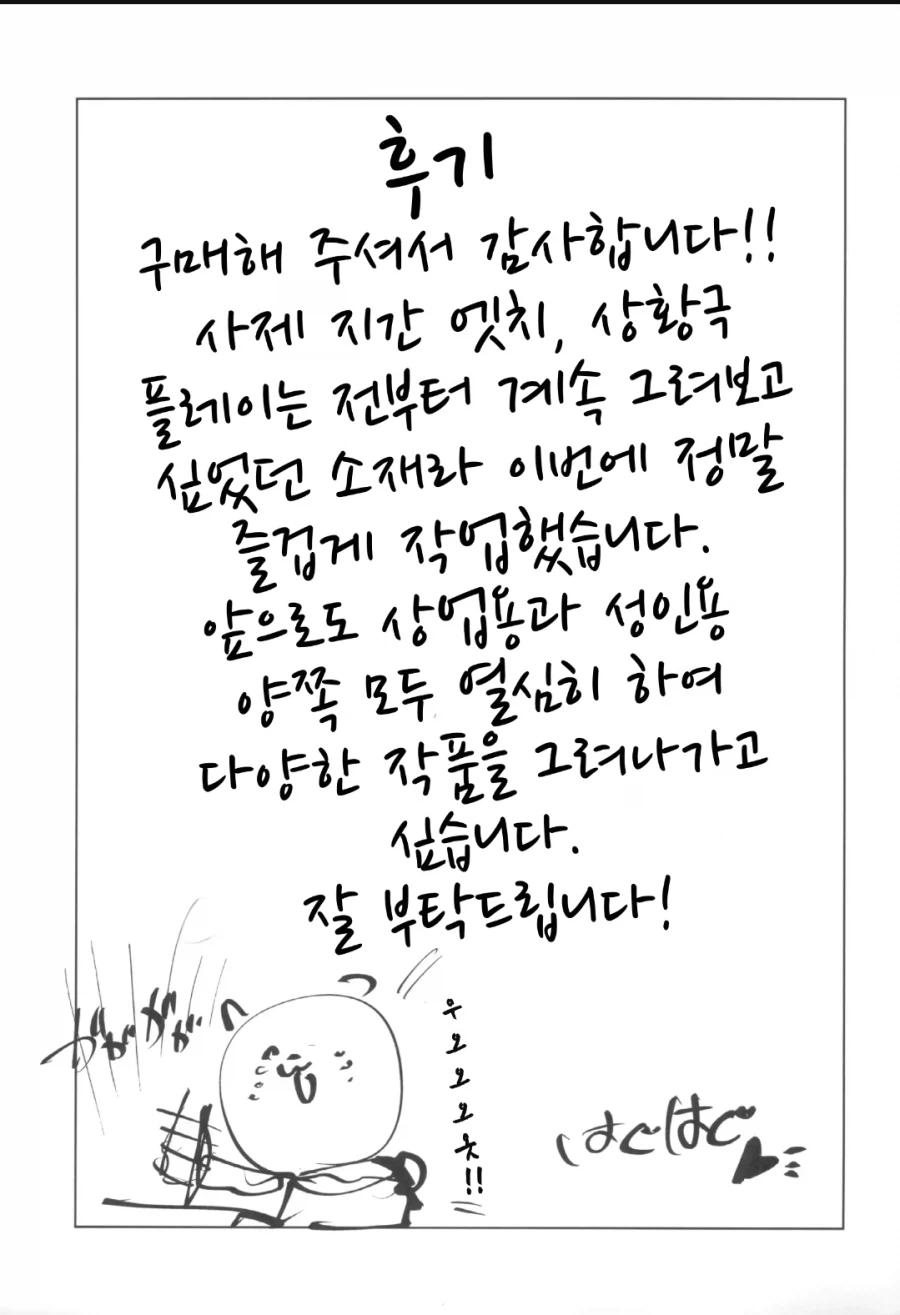 후기
구매해 주셔서 감사합니다!!
사제 지간 엣치, 상황극
플레이는 전부터 계속 그려보고
싶었던 소재라 이번에 정말
즐겁게 작업했습니다.
앞으로도 상업용과 성인용
양쪽 모두 열심히 하여
다양한 작품을 그려나가고
싶습니다.
잘 부탁드립니다!
ガガガガ
우오오오옷!!
はぐはぐ